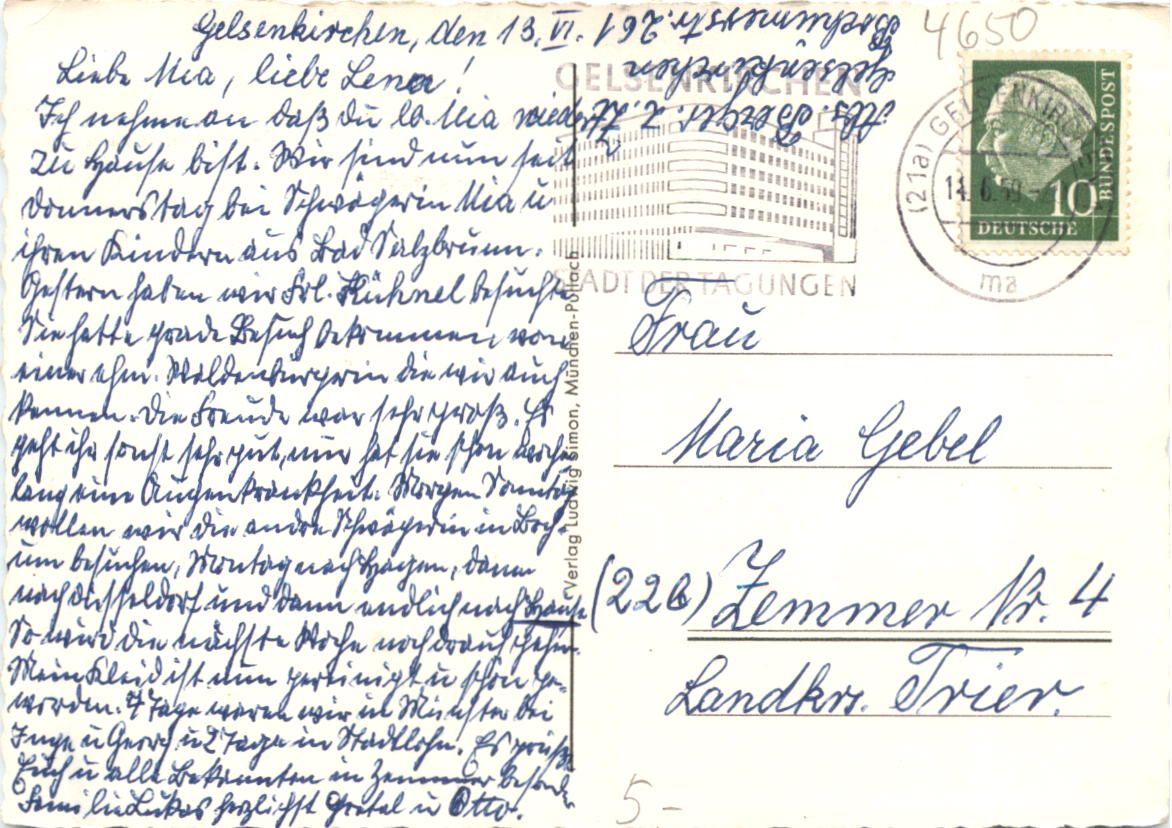 Gelsenkirchen, den 13. VI.
Liebe Mia, liebe Lena!
Ich nehme an daß du lb. Mia wieder
zu Hause bist. Wir sind nun seit
Donnerstag bei Schwägerin Mia u
ihren Kindern aus Bad Salzbrunn.
Gestern haben wir Frl. Kühnel besucht.
Sie hatte grade Besuch bekommen von
einer ehm. Waldenburgerin die wir auch
kennen. Die Freude war sehr groß. Es
geht ihr sonst sehr gut, nur hat sie schon wochen
lang eine Augenkrankheit. Morgen Sonntag
wollen wir die andre Schwägerin in Boch-
um besuchen, Montag nach Hagen, dann
nach Düsseldorf und dann endlich nach Hause
So wird die nächste Woche noch drauf gehen.
Mein Kleid ist nun gereinigt u schön ge-
worden. 4 Tage waren wir in Münster bei
Inge u Georg u 2 Tage in Stadtlohn. Es grüßt
Euch u alle Bekannten in Zemmer besonders
Familie Lukas herzlichst Gretel u Otto.
Abs. Berger. z. Zt.
Gelsenkirchen
Bochumerstr. 261
4650
GELSENKIRCHEN
STADT DER TAGUNGEN
(21a) GELSENKIRCHEN
14.6.59
ma
10
DEUTSCHE
BUNDESPOST
Verlag Ludwig Simon, München-Pullach
Frau
Maria Gebel
(22b) Zemmer Nr. 4
Landkrs. Trier.
5-